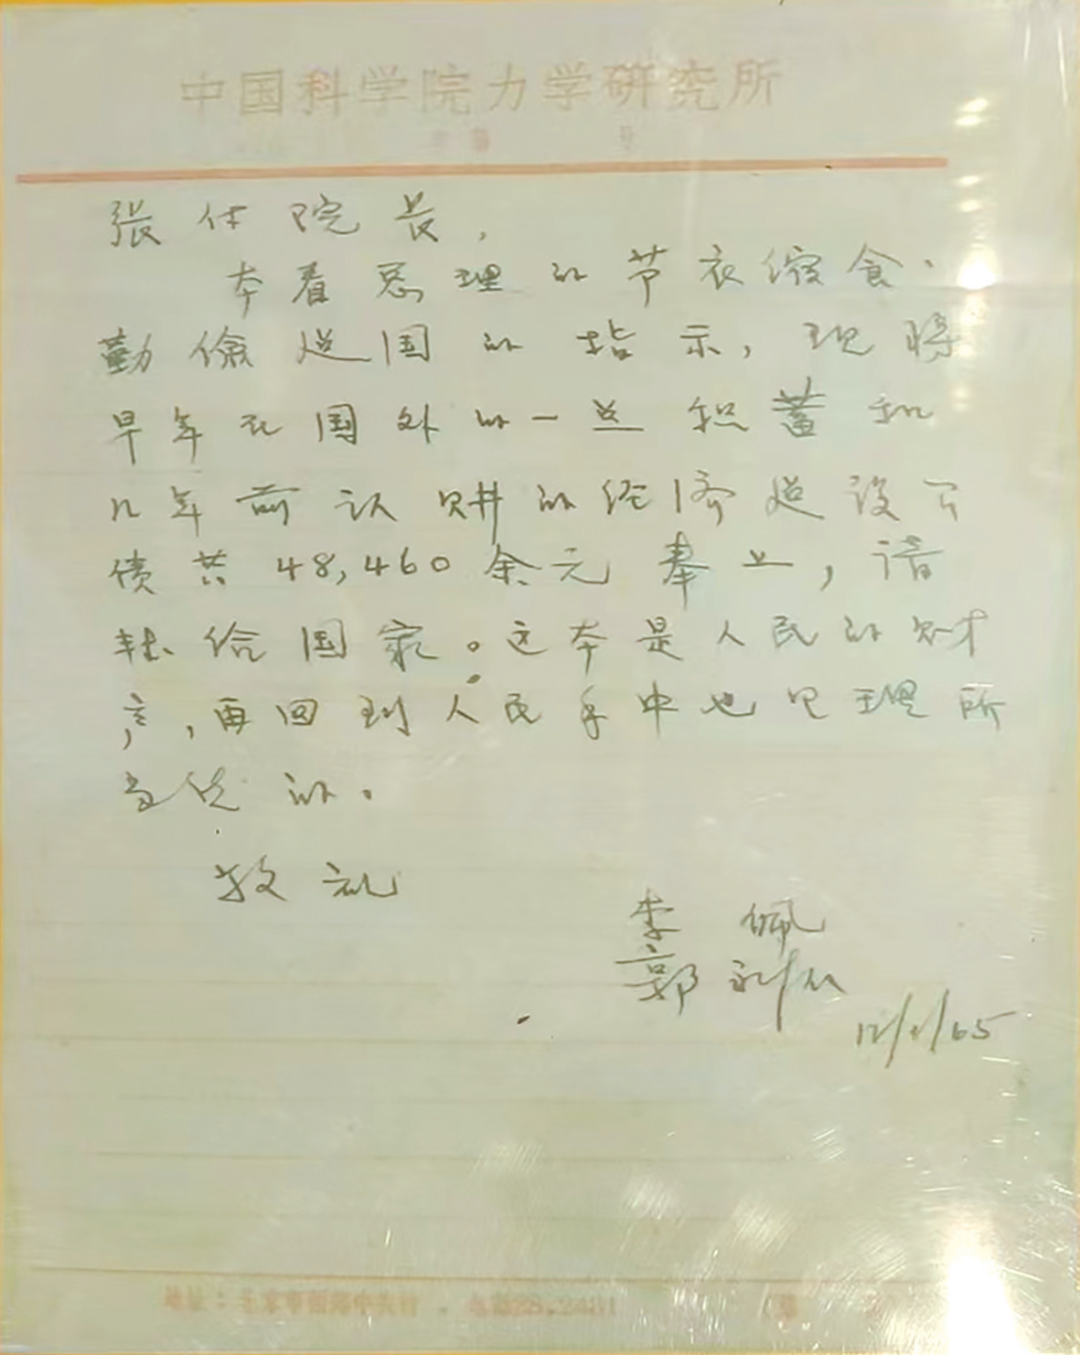 中国科学院力学研究所
张付院长,
本着总理的节衣缩食、
勤俭建国的指示,现将
早年在国外的一点积蓄和
几年前认购的经济建设公
债共48,460余元奉上,请
转给国家。这本是人民的财
产,再回到人民手中也是理所
当然的。
敬礼
李佩
郭永怀